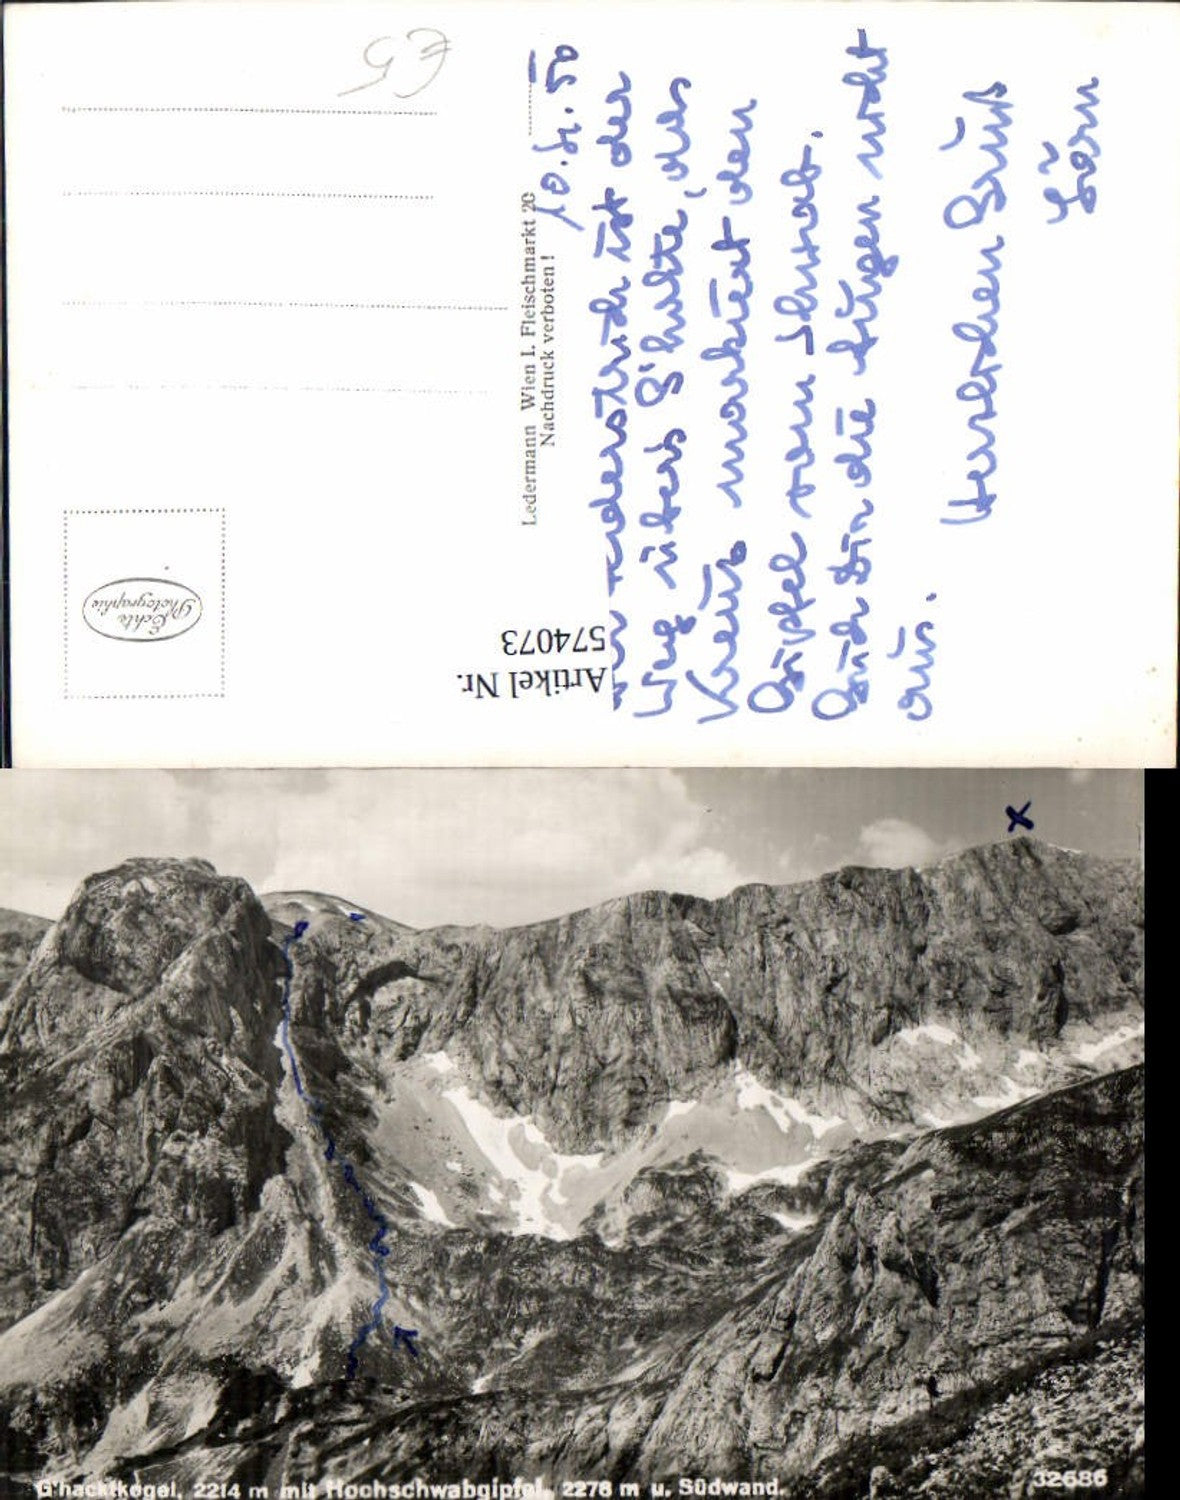 €5
10.
Ledermann Wien I. Fleischmarkt 20
Nachdruck verboten!
Echte
Photographie
Artikel Nr.
574073
ist der
Weg übers G'hakte, das
Kreuz markiert den
Gipfel vom Schwab.
Auch bin die
aus.
Herzlichen Gruß
G'hacktkogel, 2214 m mit Hochschwabgipfel, 2278 m u. Südwand.
32686
X